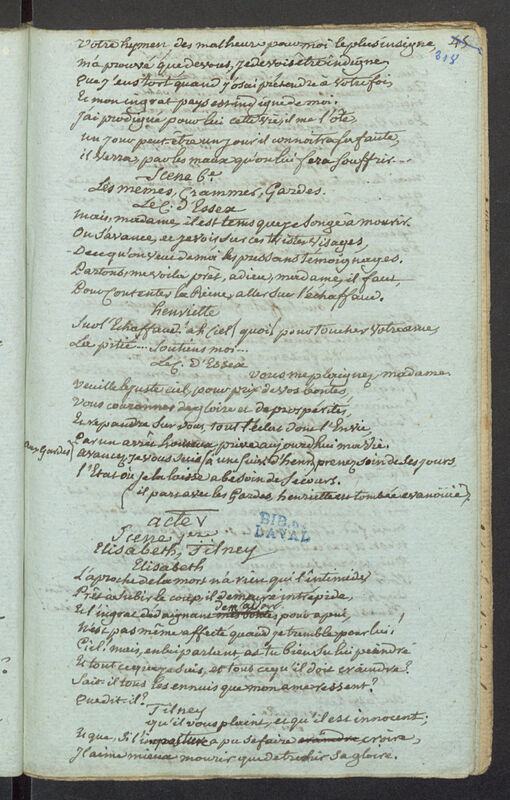 45
318
Votre hymen des malheurs pour moi le plus insigne
m'a prouvé que de vous, je dois être indigne,
Que j'eus tort quand j'osai prétendre à votre foi,
Et mon ingrat pays est indigne de moi.
J'ai prodigué pour lui cette vie, il me l'ôte,
Un jour peut-être un jour il connoîtra sa faute,
il verra, par les maux qu'on lui fera souffrir...
Scene 6e
Les mêmes, Crammer, Gardes.
Le C. D'Essex
mais, madame, il est tems que je songe à mourir.
On s'avance, et je vois sur ces tristes visages
De ce qu'on veut de moi les pressans témoignages.
Partons, me voilà prêt, adieu, madame, il faut,
Pour contenter la Reine, aller sur l'échaffaud.
henriette
Sur l'Echaffaud! ah Ciel! quoi, pour toucher votre ame
La pitié... Soutiens moi...
Le C. D'Essex
Vous me plaignez, madame
Veuille le juste ciel, pour prix de vos bontés,
Vous couronner de gloire et de prosperités,
Et repandre sur vous tout l'éclat dont l'Envie,
Par un arrêt honteux prive aujourd'hui ma vie.
aux Gardes
avancez, je vous suis (à une suiv. d'henr.) prenez soin de ses jours
l'Etat où je la laisse a besoin de secours.
(il part avec les Gardes, henriette est tombée évanouïe)
acte V
Scene 1ere
Elisabeth, Tilney
Elisabeth
L'aproche de la mort n'a rien qui l'intimide,
Prêt à subir le coup, il demeure intrépide,
Et l'ingrat dédaignant mes bontés pour apui,
N'est pas meme affecté quand je tremble pour lui!
Ciel! mais, en lui parlant as-tu bien su lui peindre
Et tout ce que je suis, et tout ce qu'il doit craindre?
Sait-il tous les ennuis que mon ame ressent?
Que dit-il?
Tilney
qu'il vous plaint, et qu'il est innocent;
Et que, si l'imposture a pu se faire craindre croire,
J'aime mieux mourir que de trahir sa gloire.
BIB. DE
LAVAL